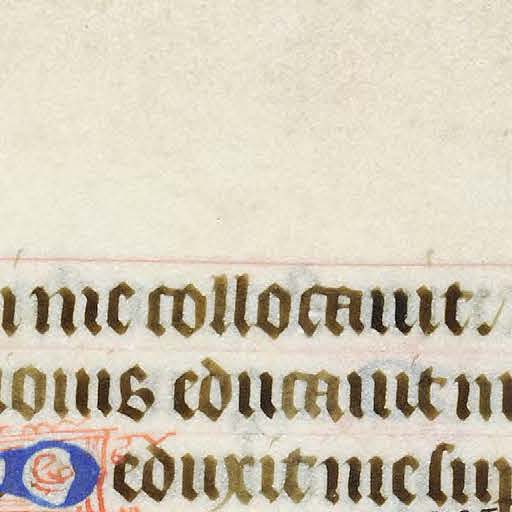 i me collocauit.
ionis educauit m
Deduxit me sup